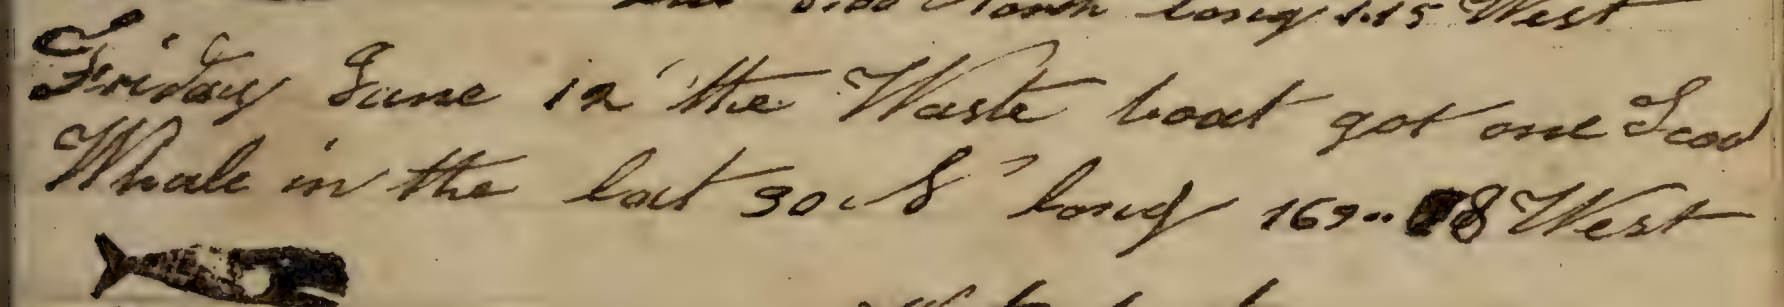 North long 115 West
Friday June 12 the Waste boat got one
Whale in the lat 30 long 169.. 8 West